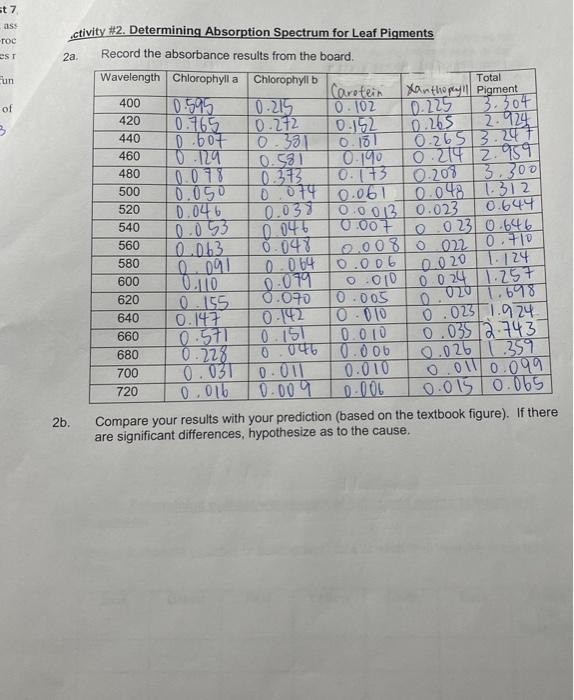 st 7
ass
roc
es r
fun
of
3
ctivity #2. Determining Absorption Spectrum for Leaf Pigments
2a. Record the absorbance results from the board.
Wavelength Chlorophyll a Chlorophyll b Carotein Xanthophyll Total Pigment
400 0.595 0.215 0.102 0.225 3.304
420 0.765 0.272 0.152 0.265 2.924
440 0.607 0.381 0.181 0.265 3.247
460 0.129 0.581 0.190 0.214 2.959
480 0.078 0.373 0.173 0.208 3.300
500 0.050 0.074 0.061 0.048 1.312
520 0.046 0.038 0.0013 0.023 0.644
540 0.053 0.046 0.007 0.023 0.646
560 0.063 0.048 0.008 0.022 0.710
580 0.091 0.064 0.006 0.020 1.124
600 0.110 0.079 0.010 0.024 1.257
620 0.155 0.070 0.005 0.020 1.698
640 0.147 0.142 0.010 0.023 1.924
660 0.571 0.151 0.010 0.035 2.743
680 0.228 0.046 0.006 0.026 1.359
700 0.031 0.011 0.010 0.011 0.099
720 0.016 0.009 0.006 0.015 0.065
2b. Compare your results with your prediction (based on the textbook figure). If there
are significant differences, hypothesize as to the cause.